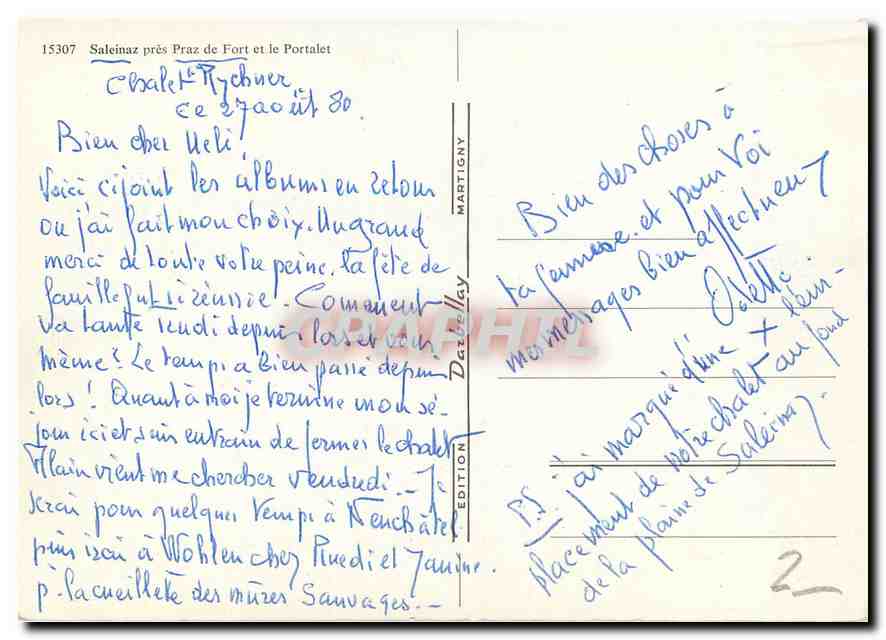 15307 Saleinaz près Praz de Fort et le Portalet
Chalet Rychner
Ce 27 août 80.
Bien cher Ueli,
Voici cijoint les albums en retour
ou j'ai fait mon choix. Un grand
merci de toute votre peine, la fête de
famille fut si réussie. Comment
va tante depuis lors et vous
même? Le temps a bien passé depuis
lors! Quant à moi je termine mon sé-
jour ici et suis en train de fermer le chalet
Alain vient me chercher Vendredi.- Je
serai pour quelques temps à Neuchâtel
puis irai à Wohlen chez Ruedi et Janine.
p. la cueillète des mûres Sauvages.-
EDITION Darbellay MARTIGNY
CPAPHIL
Bien des choses à
ta femme et pour toi
mes messages bien affectueux
Odette.
P.S. j'ai marqué d'une x l'em-
placement de notre chalet au fond
de la plaine de Saleinaz.
2